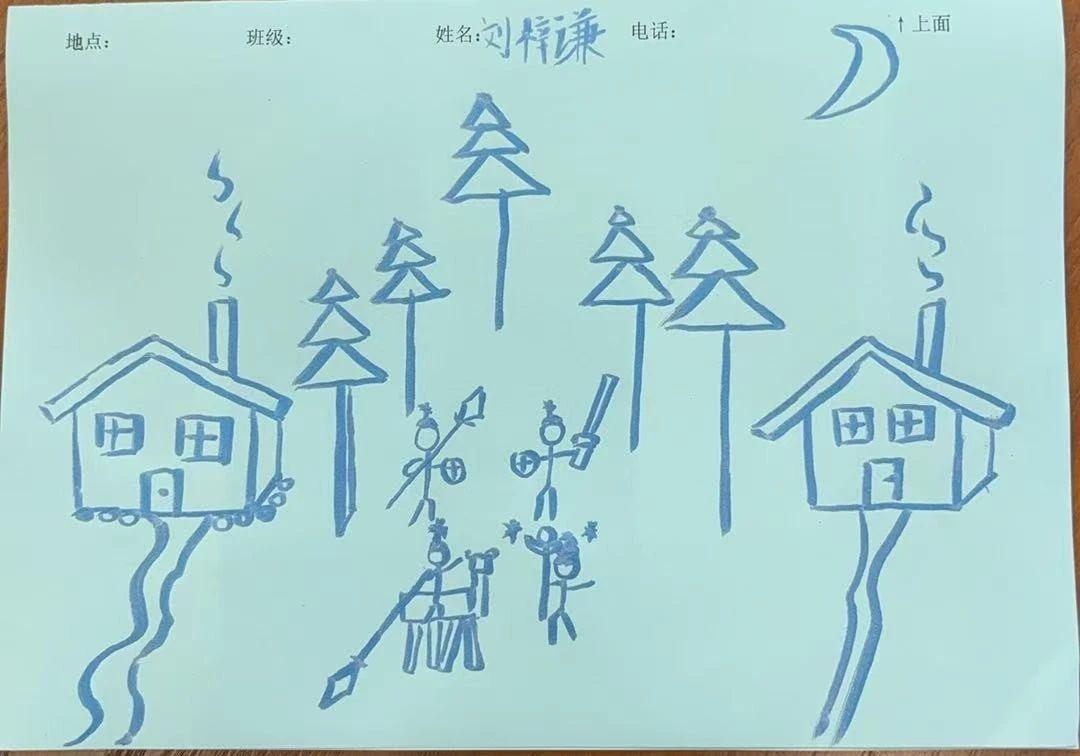 地点： 班级： 姓名：刘梓谦 电话： ↑上面